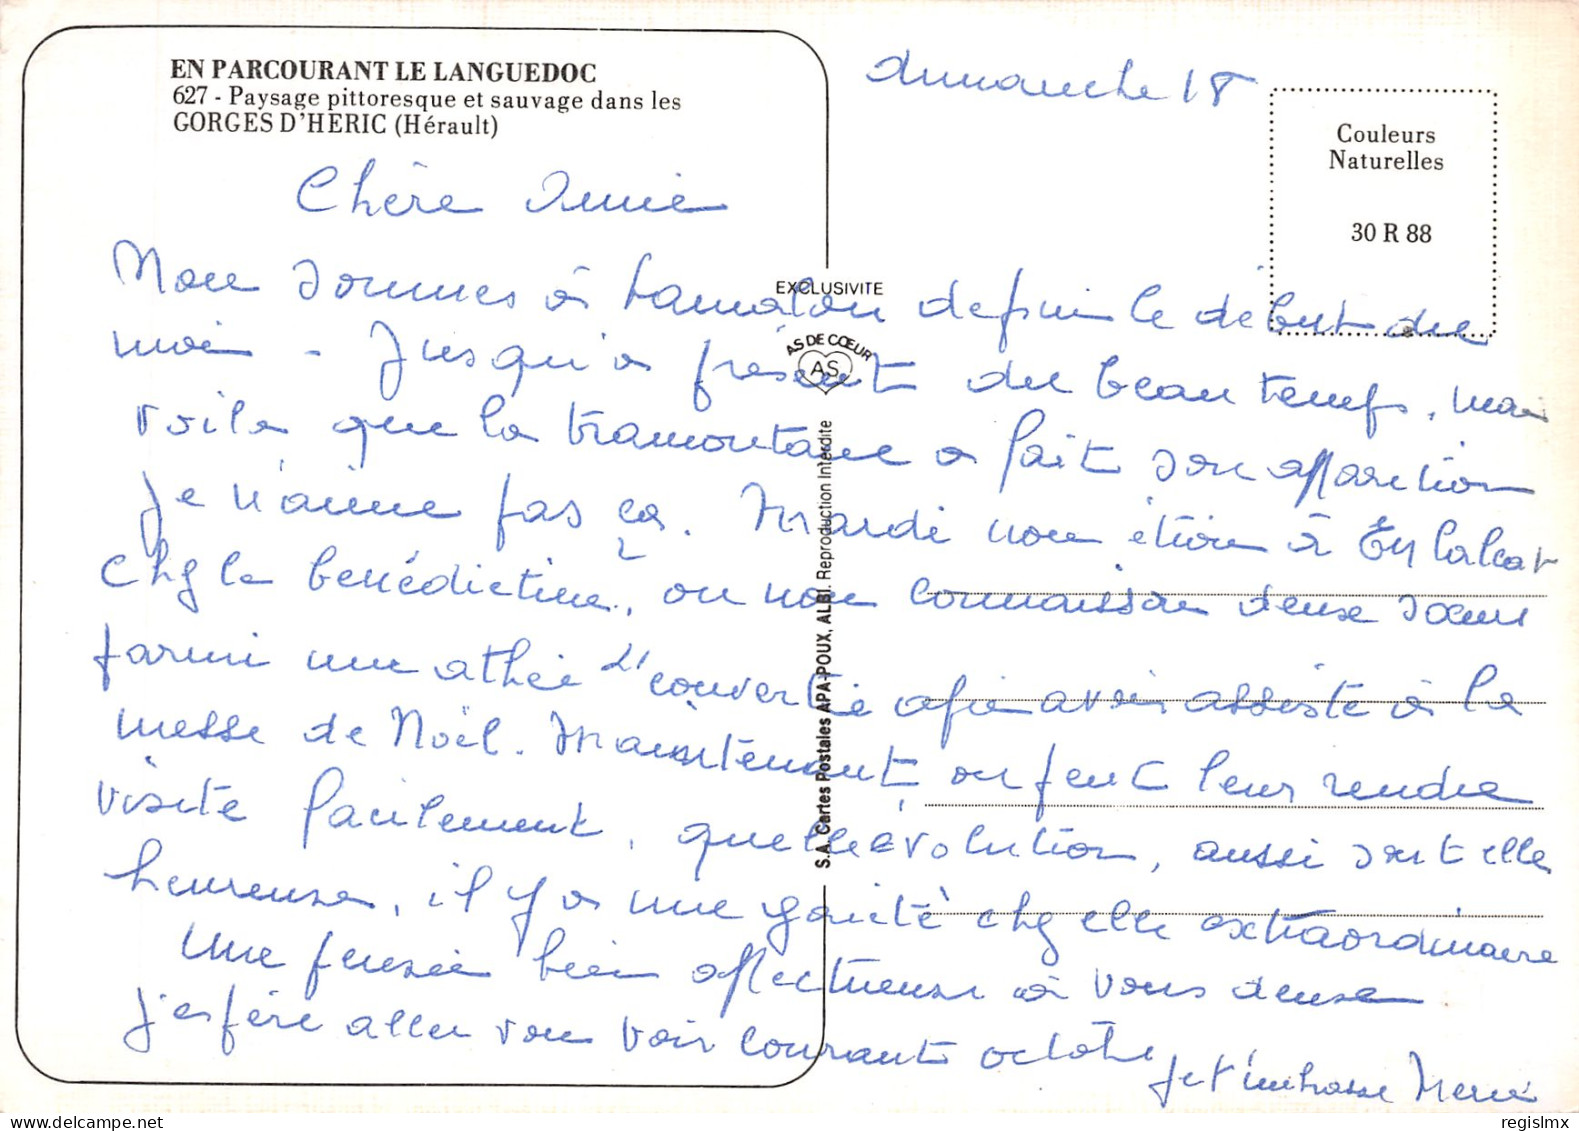 EN PARCOURANT LE LANGUEDOC
627 - Paysage pittoresque et sauvage dans les
GORGES D'HERIC (Hérault)
dimanche 18
Couleurs
Naturelles
30 R 88
EXCLUSIVITE
AS DE CŒUR
AS
S.A. Cartes Postales APA-POUX, ALBI. Reproduction Interdite
Chère Annie
Nous sommes à Lamalou depuis le début du
mois - Jusqu'à présent du beau temps, mais
voilà que la tramontane a fait son apparition
Je n'aime pas ça. Mardi nous étions à En Calcat
chez les bénédictines, où nous connaissons deux sœurs
parmi une athée convertie après avoir assisté à la
messe de Noël. Maintenant on peut leur rendre
visite facilement, quelle évolution, aussi sont elles
heureuses, il y a une gaieté chez elles extraordinaire
Une pensée bien affectueuse à vous deux
J'espère aller vous voir courant octobre
Je t'embrasse